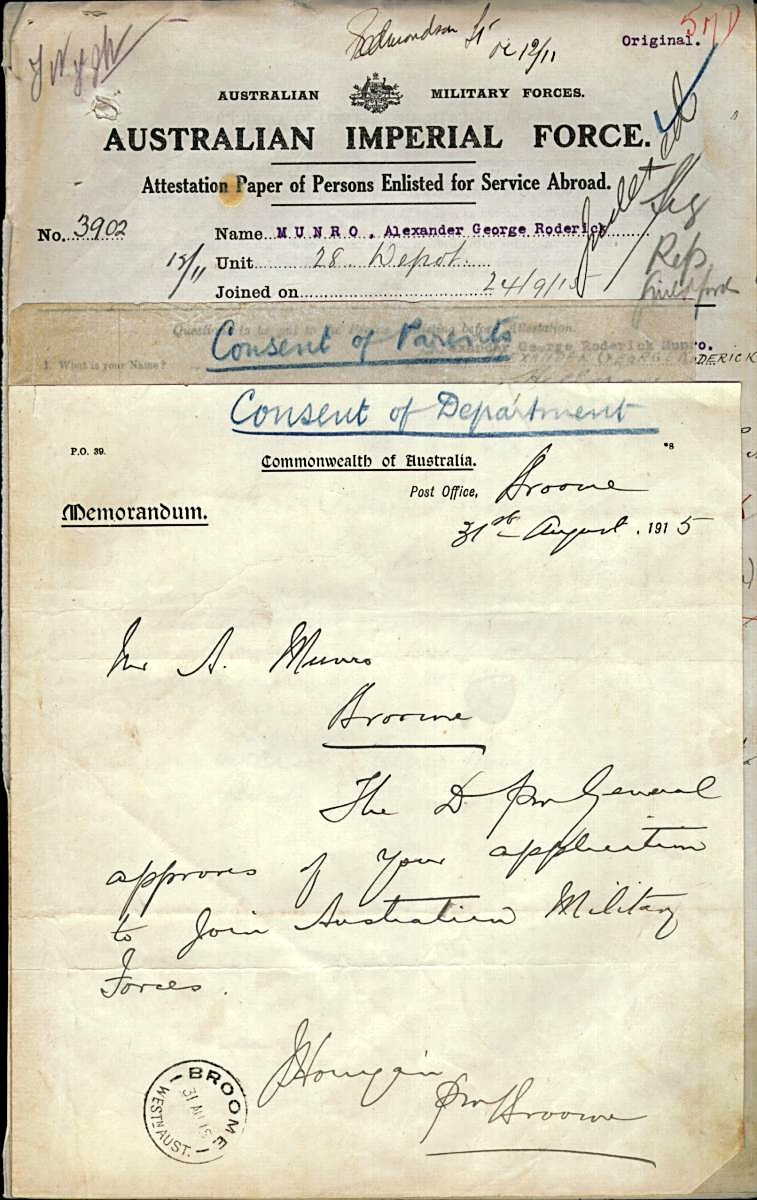 Edmondson St
12/11
Original.
57D
AUSTRALIAN MILITARY FORCES.
AUSTRALIAN IMPERIAL FORCE.
Attestation Paper of Persons Enlisted for Service Abroad.
No. 3902
Name MUNRO, Alexander George Roderick
Unit 28 Depot.
Joined on 24/9/15
Sig
Reps
Consent of Parents
1. What is your Name?
Consent of Department
P.O. 39.
Commonwealth of Australia.
Post Office, Broome
Memorandum.
31st August. 1915
Mr A. Munro
Broome
The D PM General
approves of your application
to Join Australian Military
Forces.
PM Broome
BROOME
31 AU 15
WESTN AUST.